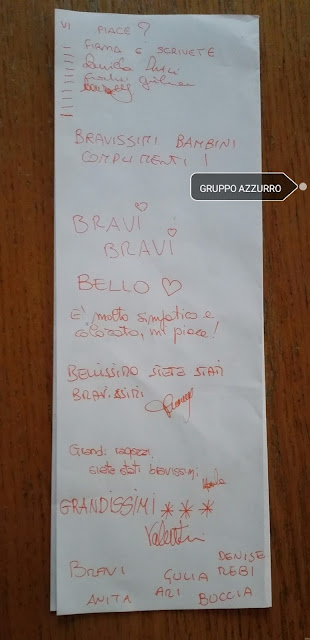 VI PIACE?
FIRMA E SCRIVETE
BRAVISSIMI BAMBINI
COMPLIMENTI!
GRUPPO AZZURRO
BRAVI
BRAVI
BELLO
E' molto simpatico e
colorato, mi piace!
BELLISSIMO SIETE STATI
BRAVISSIMI
Grandi ragazzi
siete stati bravissimi
GRANDISSIMI
BRAVI
GIULIA
DENISE
REBI
ANITA
ARI
BOCCIA